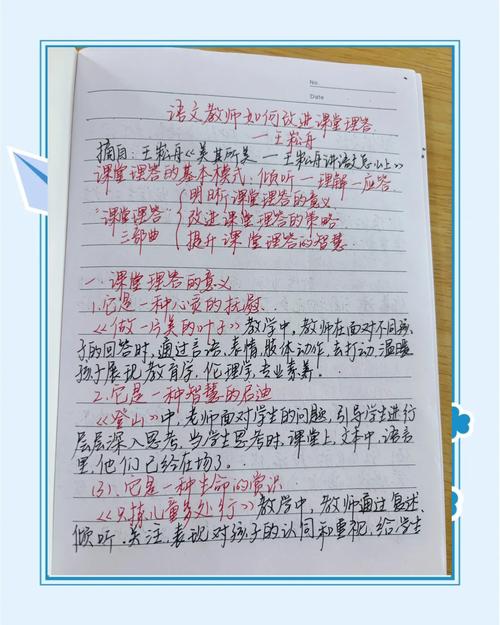 No.
Date
语文教师如何改进课堂理答
—王崧舟
摘自:王崧舟《美其所美—王崧舟讲语文怎么上》
课堂理答的基本模式:倾听—理解—应答
"课堂理答"三部曲
明晰课堂理答的意义
改进课堂理答的策略
提升课堂理答的智慧
一.课堂理答的意义
1.它是一种心灵的抚慰
《做一片美的叶子》教学中,教师在面对不同孩
子的回答时,通过言语,表情,肢体动作,去打动,温暖
孩子展现教育学,伦理学,专业素养!
2.它是一种智慧的启迪
《登山》中,老师面对学生的问题,引导学生进行
层层深入思考.当学生思考时,课堂上,文本中,语言
里,他们已经在场了。
(3).它是一种生命的赏识
《只拣儿童多处行》教学中,教师通过复述、
倾听.关注,表现对孩子的认同和重视,给学生